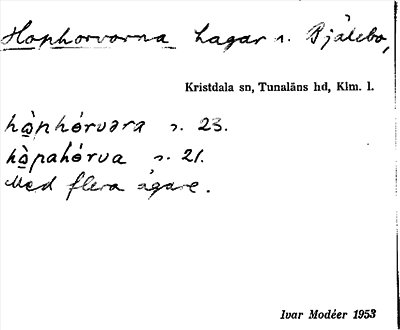 Hophorvorna hagar s. Bjälebo,
Kristdala sn, Tunaläns hd, Klm. l.
hò̲phórvəra s. 23.
hò̲pahórva s. 21.
Med flera ägare.
Ivar Modéer 1953